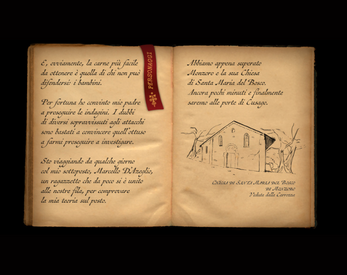 E, ovviamente, la carne più facile
da ottenere è quella di chi non può
difendersi: i bambini.
Per fortuna ho convinto mio padre
a proseguire le indagini. I dubbi
di diversi sopravvissuti agli attacchi
sono bastati a convincere quell'ottuso
a farmi proseguire a investigare.
Sto viaggiando da qualche giorno
col mio sottoposto, Marcello D'Azeglio,
un ragazzetto che da poco si è unito
alle nostre fila, per comprovare
la mia teoria sul posto.
PERSONAGGI
Abbiamo appena superato
Monzoro e la sua Chiesa
di Santa Maria del Bosco.
Ancora pochi minuti e finalmente
saremo alle porte di Cusago.
CHIESA DI SANTA MARIA DEL BOSCO
IN MONZORO
Veduta della Corrente